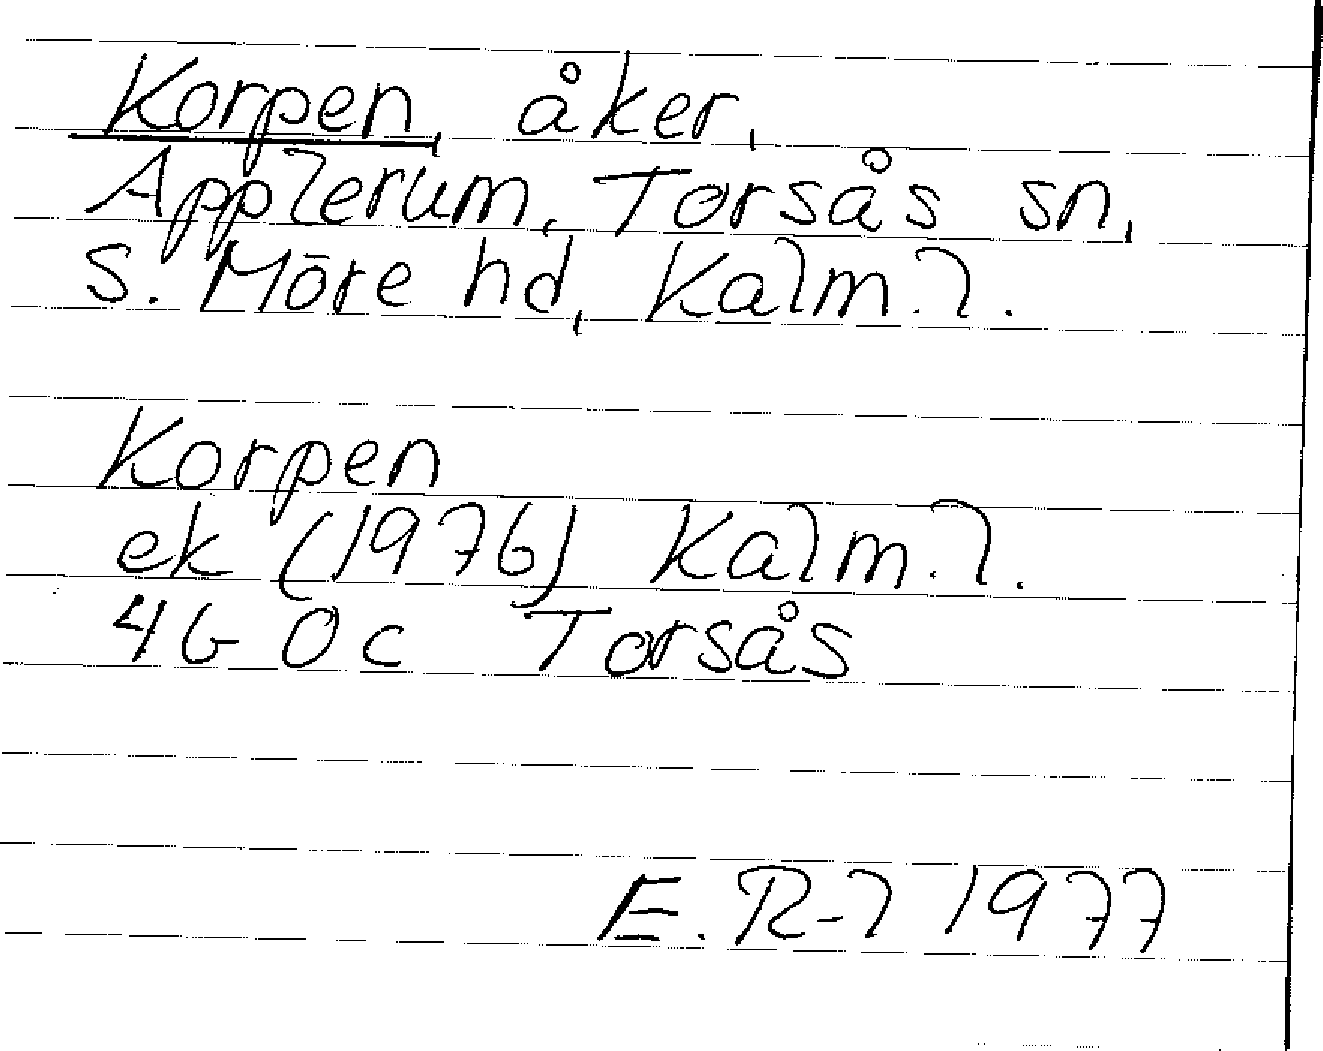 Korpen, åker,
Applerum, Torsås sn,
S. Möre hd, Kalm. l.
Korpen
ek (1976) Kalm. l.
4G 0c Torsås
E. R-l 1977